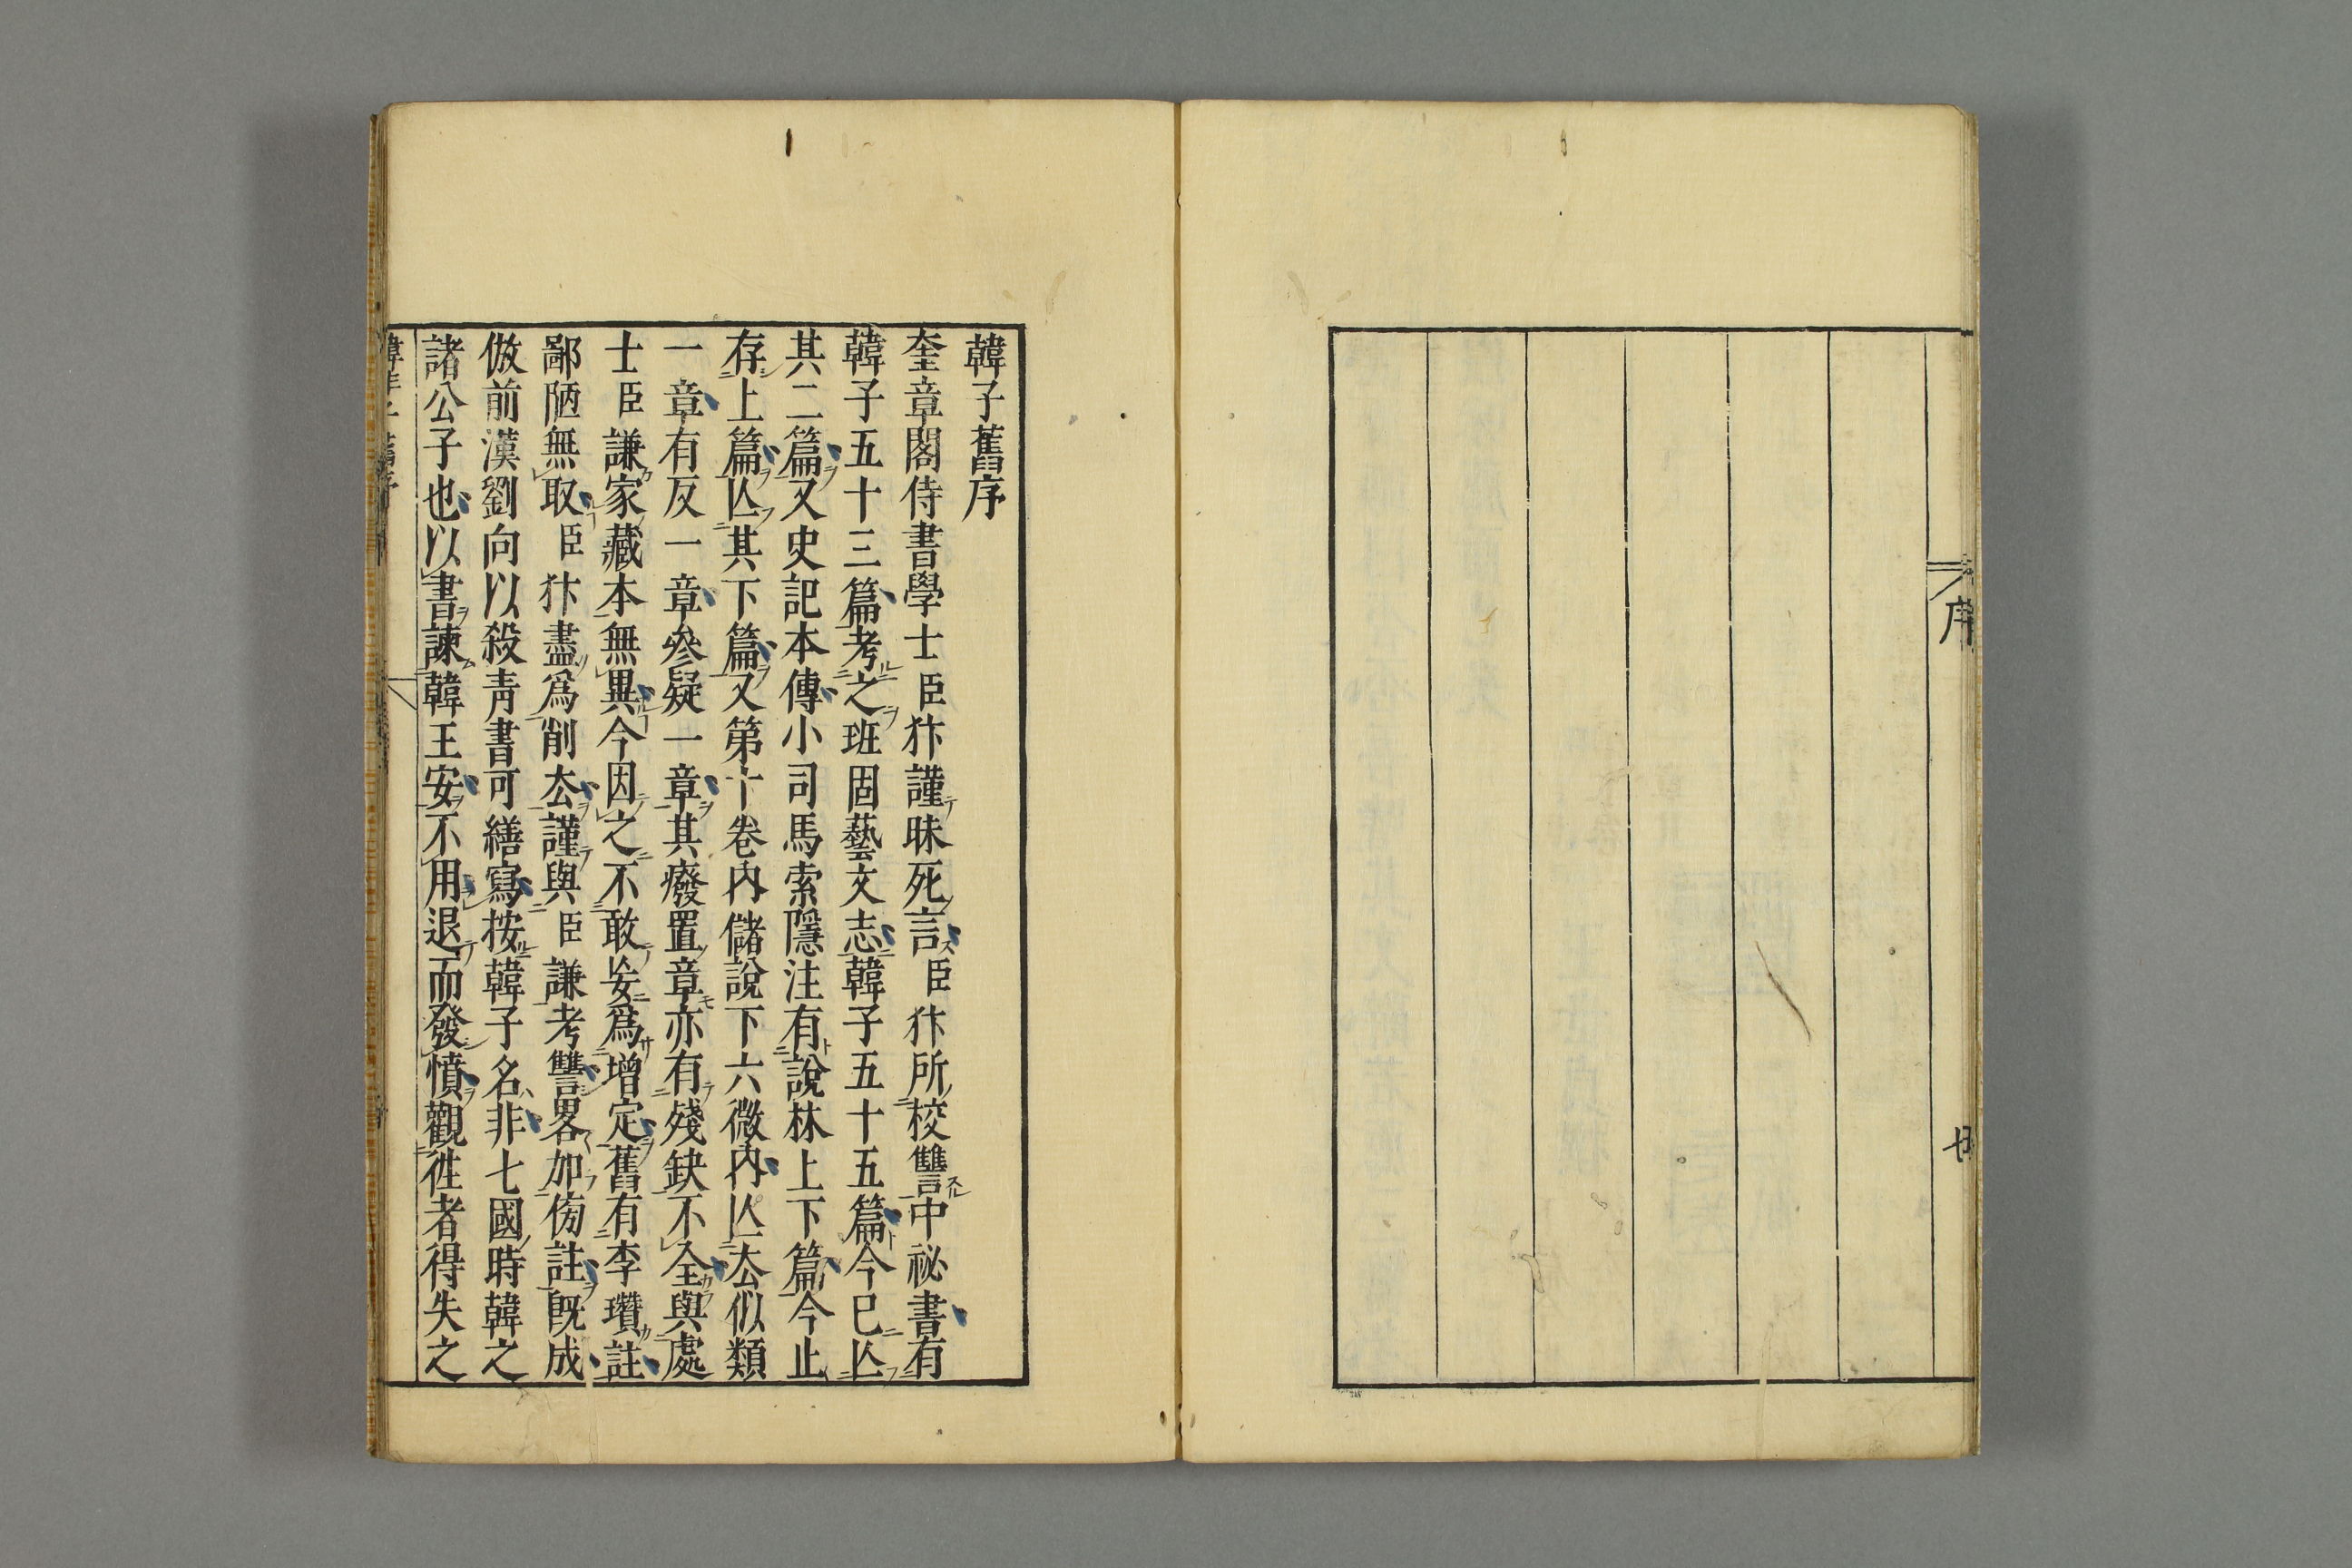 序
韓子舊序
奎章閣侍書學士臣犿謹昧死言臣犿所校讐中祕書有
韓子五十三篇考之班固藝文志韓子五十五篇今已亾
其二篇又史記本傳小司馬索隱注有說林上下篇今止
存上篇亾其下篇又第十卷內儲說下六微內亾去似類
一章有反一章參疑一章其廢置章亦有殘缺不全與處
士臣謙家藏本無異今因之不敢妄爲增定舊有李瓚註
鄙陋無取臣犿盡爲削去謹與臣謙考讐畧加傍註旣成
倣前漢劉向以殺靑書可繕寫按韓子名非七國時韓之
諸公子也以書諫韓王安不用退而發憤觀徃者得失之